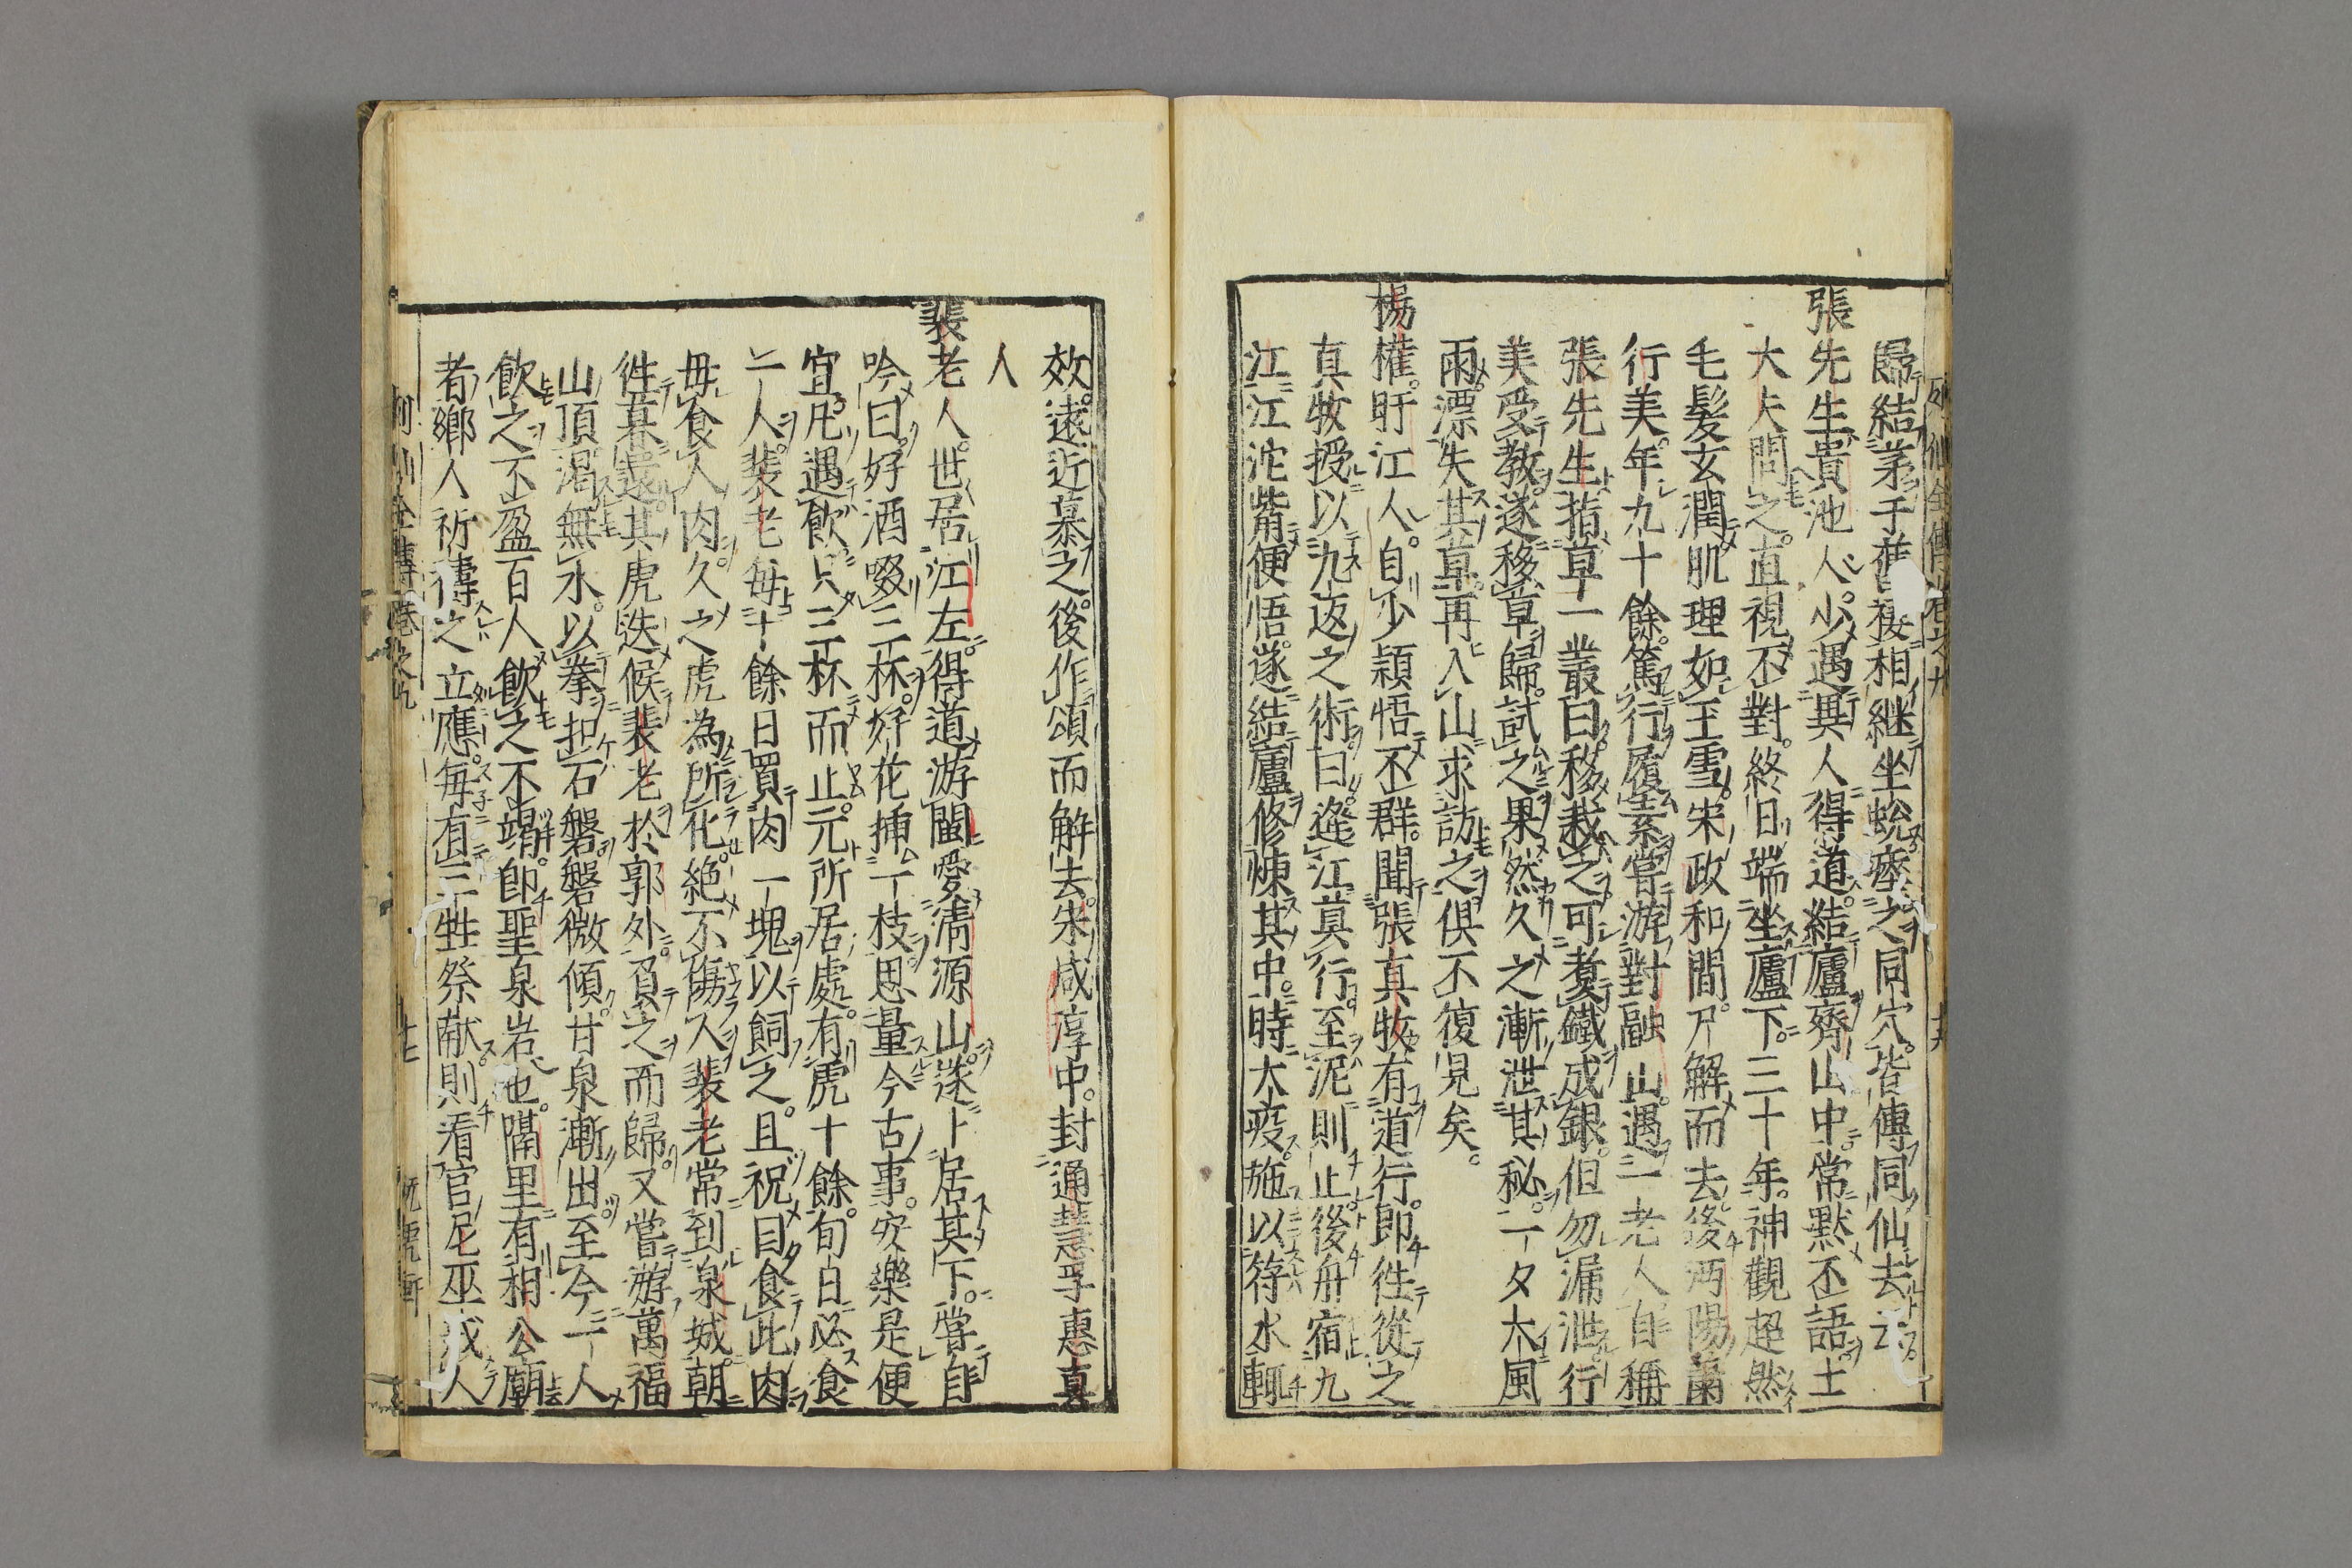 歸結茅于舊棲相繼坐蛻瘞之同穴皆傳同仙去云
張先生貴池人少遇異人得道結廬齊山中常默不語士
大夫問之直視不對終日端坐廬下三十年神觀超然
毛髮玄潤肌理如玉雪宋政和間尸解而去後沔陽蕭
行美年九十餘篤行履素嘗游對融山遇一老人自稱
張先生指草一叢曰移栽之可煑鐵成銀但勿漏泄行
美受教遂移草歸試之果然久之漸泄其秘一夕大風
雨漂失其草再入山求訪之俱不復見矣
楊權盱江人自少頴悟不群聞張真牧有道行即徃從之
真牧授以九返之術曰逢江莫行至泥則止後舟宿九
江江沱觜便悟遂結廬修煉其中時大疫施以符水輒
效遠近慕之後作頌而解去宋咸淳中封通慧孚惠真
人
裴老人世居江左得道游閩愛清源山遂卜居其下嘗自
吟曰好酒啜三杯好花揷一枝思量今古事安樂是便
宜凡遇飲只三杯而止元所居處有虎十餘旬日必食
一人裴老每十餘日買肉一塊以飼之且祝曰食此肉
毋食人肉久之虎為所化絕不傷人裴老常到泉城朝
徃暮還其虎迭候裴老於郭外負之而歸又嘗游萬福
山頂渴無水以拳扣石磐磐微傾甘泉漸出至今一人
飲之不盈百人飲之不竭即聖泉岩也隔里有相公廟
者鄉人祈禱之立應每有三牲祭献則看官尼巫或人
列仙全傳卷之九
十七